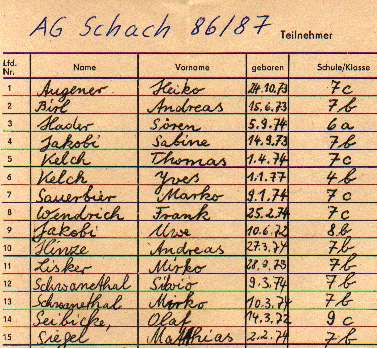 AG Schach 86/87 Teilnehmer
Lfd. Nr. Name Vorname geboren Schule/Klasse
1 Augener Heiko 24.10.73 7c
2 Birl Andreas 15.6.73 7b
3 Hader Sören 5.9.74 6a
4 Jakobi Sabine 14.9.73 7b
5 Kelch Thomas 1.4.74 7c
6 Kelch Yves 1.1.77 4b
7 Sauerbier Marko 9.1.74 7c
8 Wendrich Frank 25.2.74 7c
9 Jakobi Uwe 10.6.72 8b
10 Hinze Andreas 27.3.74 7b
11 Lisker Mirko 28.9.73 7b
12 Schwanethal Silvio 9.3.74 7b
13 Schwanethal Mirko 10.3.74 7b
14 Seibicke, Olaf 14.3.72 9c
15 Siegel Matthias 2.2.74 7b